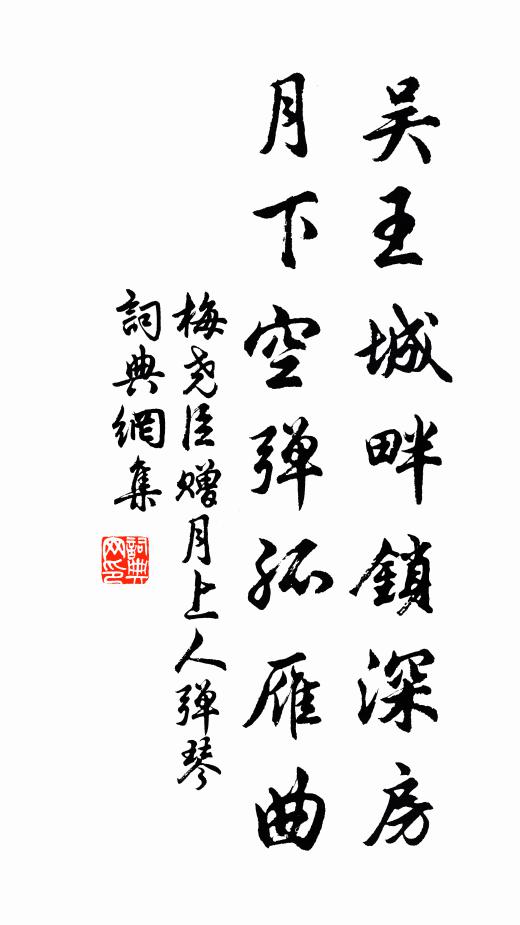 吴王城畔鎖深房
月下空弹孤雁曲
梅尧臣赠月上人弹琴
詞典網集
詞典網印